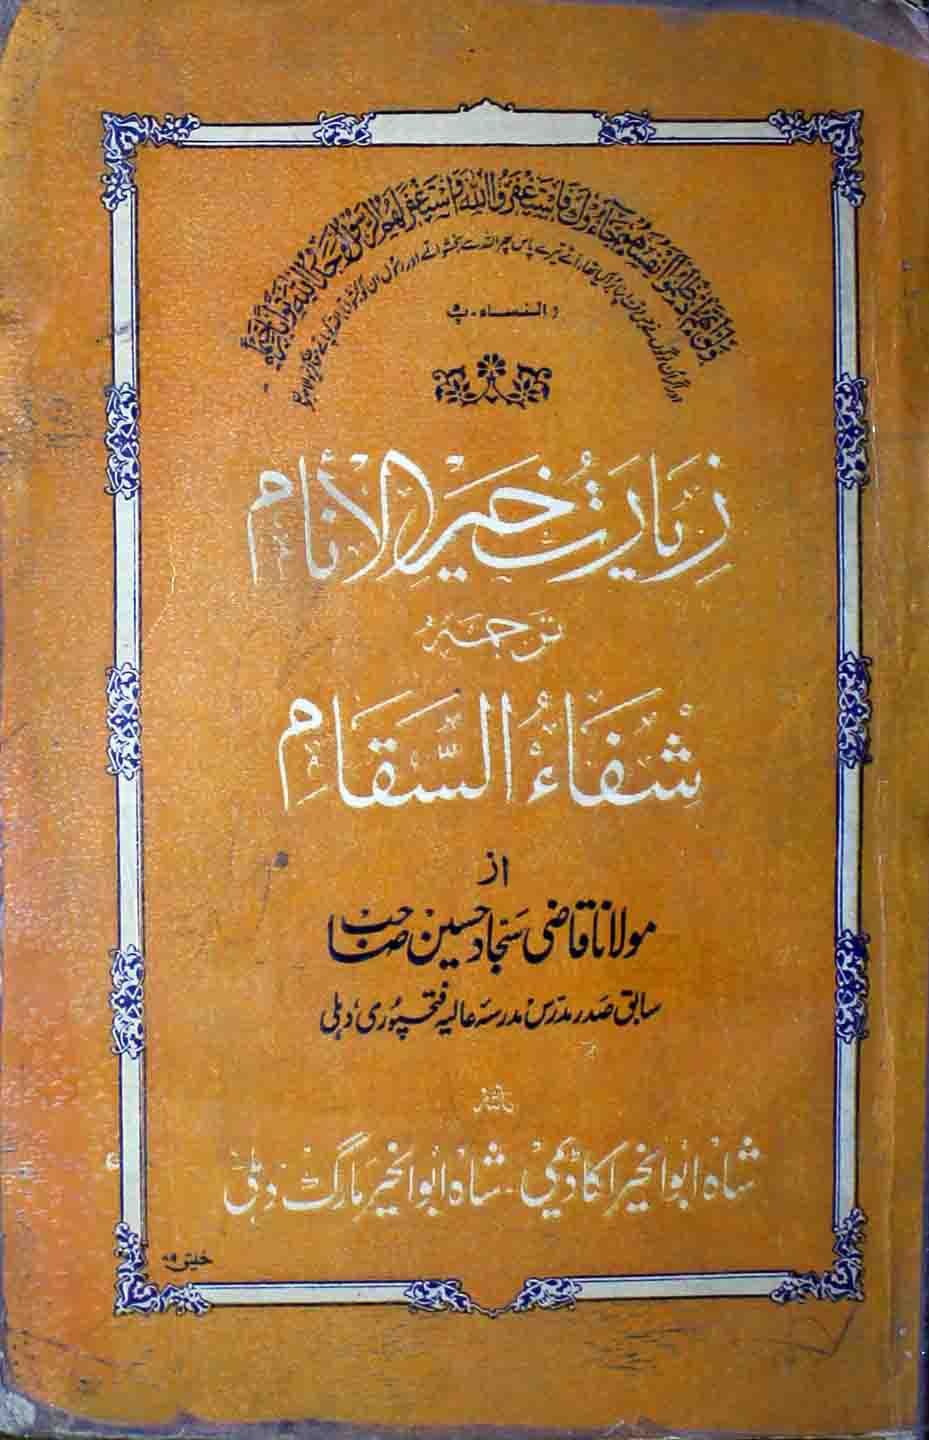 وَلَوْ أَنَّهُمْ إِذ ظَّلَمُوا أَنفُسَهُمْ جَاءُوكَ فَاسْتَغْفَرُوا اللهَ وَاسْتَغْفَرَ لَهُمُ الرَّسُولُ لَوَجَدُوا اللهَ تَوَّابًا رَّحِيمًا
آتے تیرے پاس پھر اللہ سے بخشواتے اور رسول ان کو
والنساء۔پ
زیارت خیر الأنام
ترجمہ
شفاءُ السقام
از
مولانا قاضی سجاد حسین صاحب
سابق صدر مدرس مدرسہ عالیہ فتحپوری، دہلی
ناشر
شاہ ابوالخیر اکاڈیمی۔ شاہ ابوالخیر مارگ دہلی